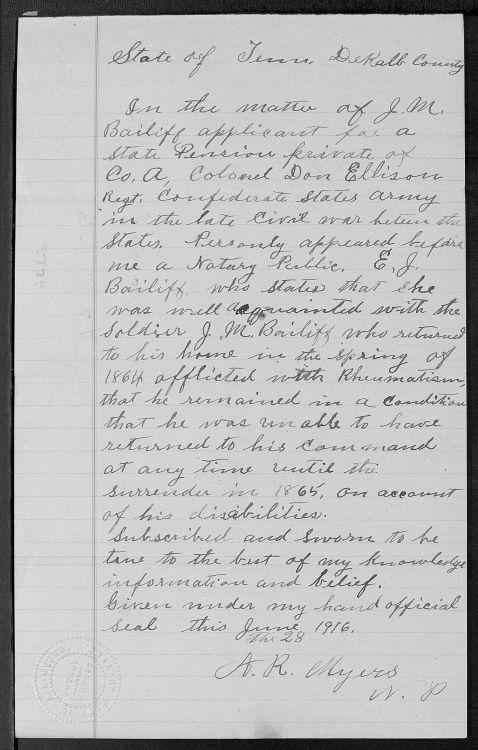 State of Tenn. DeKalb County
In the matter of J. M.
Bailiff applicant for a
State Pension private of
Co. A, Colonel Don Ellison
Regt. Confederate States army
in the late Civil war between the
States. Personly appeared before
me a Notary Public. E. J.
Bailiff who states that she
was well acquainted with the
Soldier J. M. Bailiff who returned
to his home in the Spring of
1864 afflicted with Rheumatism,
that he remained in a condition
that he was unable to have
returned to his command
at any time until the
surrender in 1865, on account
of his disibilities.
Subscribed and sworn to be
true to the best of my knowledge
information and belief.
Given under my hand official
seal this June 1916.
the 28
A. R. Myers
N. P